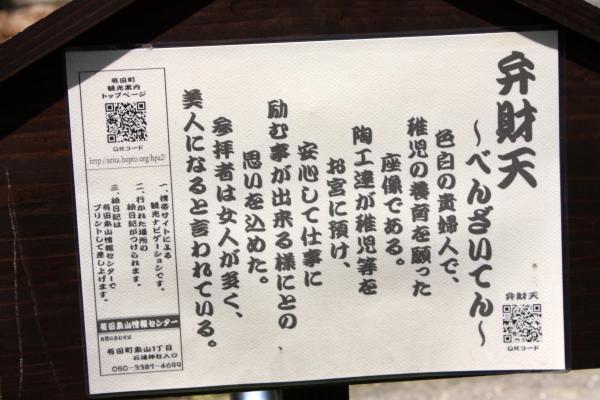 弁財天
～べんざいてん～
色白の貴婦人で、
稚児の養育を願った
座像である。
陶工達が稚児等を
お宮に預け、
安心して仕事に
励む事が出来る様にとの
思いを込めた。
参拝者は女人が多く、
美人になると言われている。
弁財天
QRコード
有田町
観光案内
トップページ
QRコード
http://arita.hopto.org/hpa2/
一、携帯サイトによる
観光ナビゲーションです。
二、行かれた場所の
絵日記がつけられます。
三、絵日記は
有田泉山情報センターで
プリントして差し上げます。
有田泉山情報センター
お問い合わせは
有田町泉山1丁目
石場神社入口
050-3387-4699